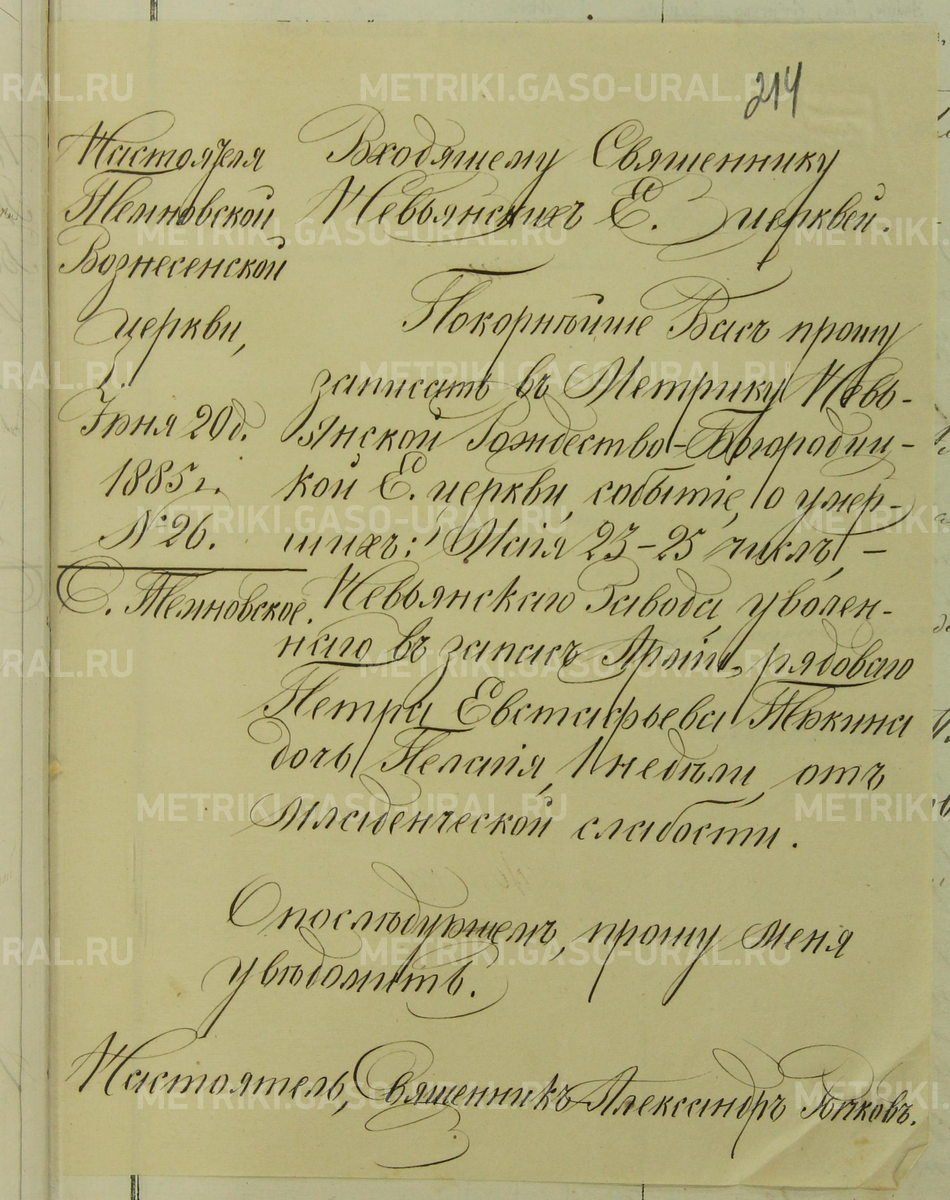 214
Настоятеля
Темновской
Вознесенской
церкви,
Іюня 20 д.
1885 г.
№ 26.
С. Темновское.
Входящему Священнику
Невьянскихъ Е. церквей.
Покорнѣйше Васъ прошу
записать въ Метрику Невь-
янской Рождество-Богородиц-
кой Е. церкви, событіе, о умер-
шихъ: Маія 23-25 числъ, –
Невьянскаго Завода, уволен-
наго въ запасъ Арміи, рядоваго
Петра Евстафьева
дочь Пелагія, 1 недѣли, отъ
младенческой слабости.
О послѣдующемъ, прошу меня
увѣдомить.
Настоятель, Священникъ Александръ
METRIKI.GASO-URAL.RU